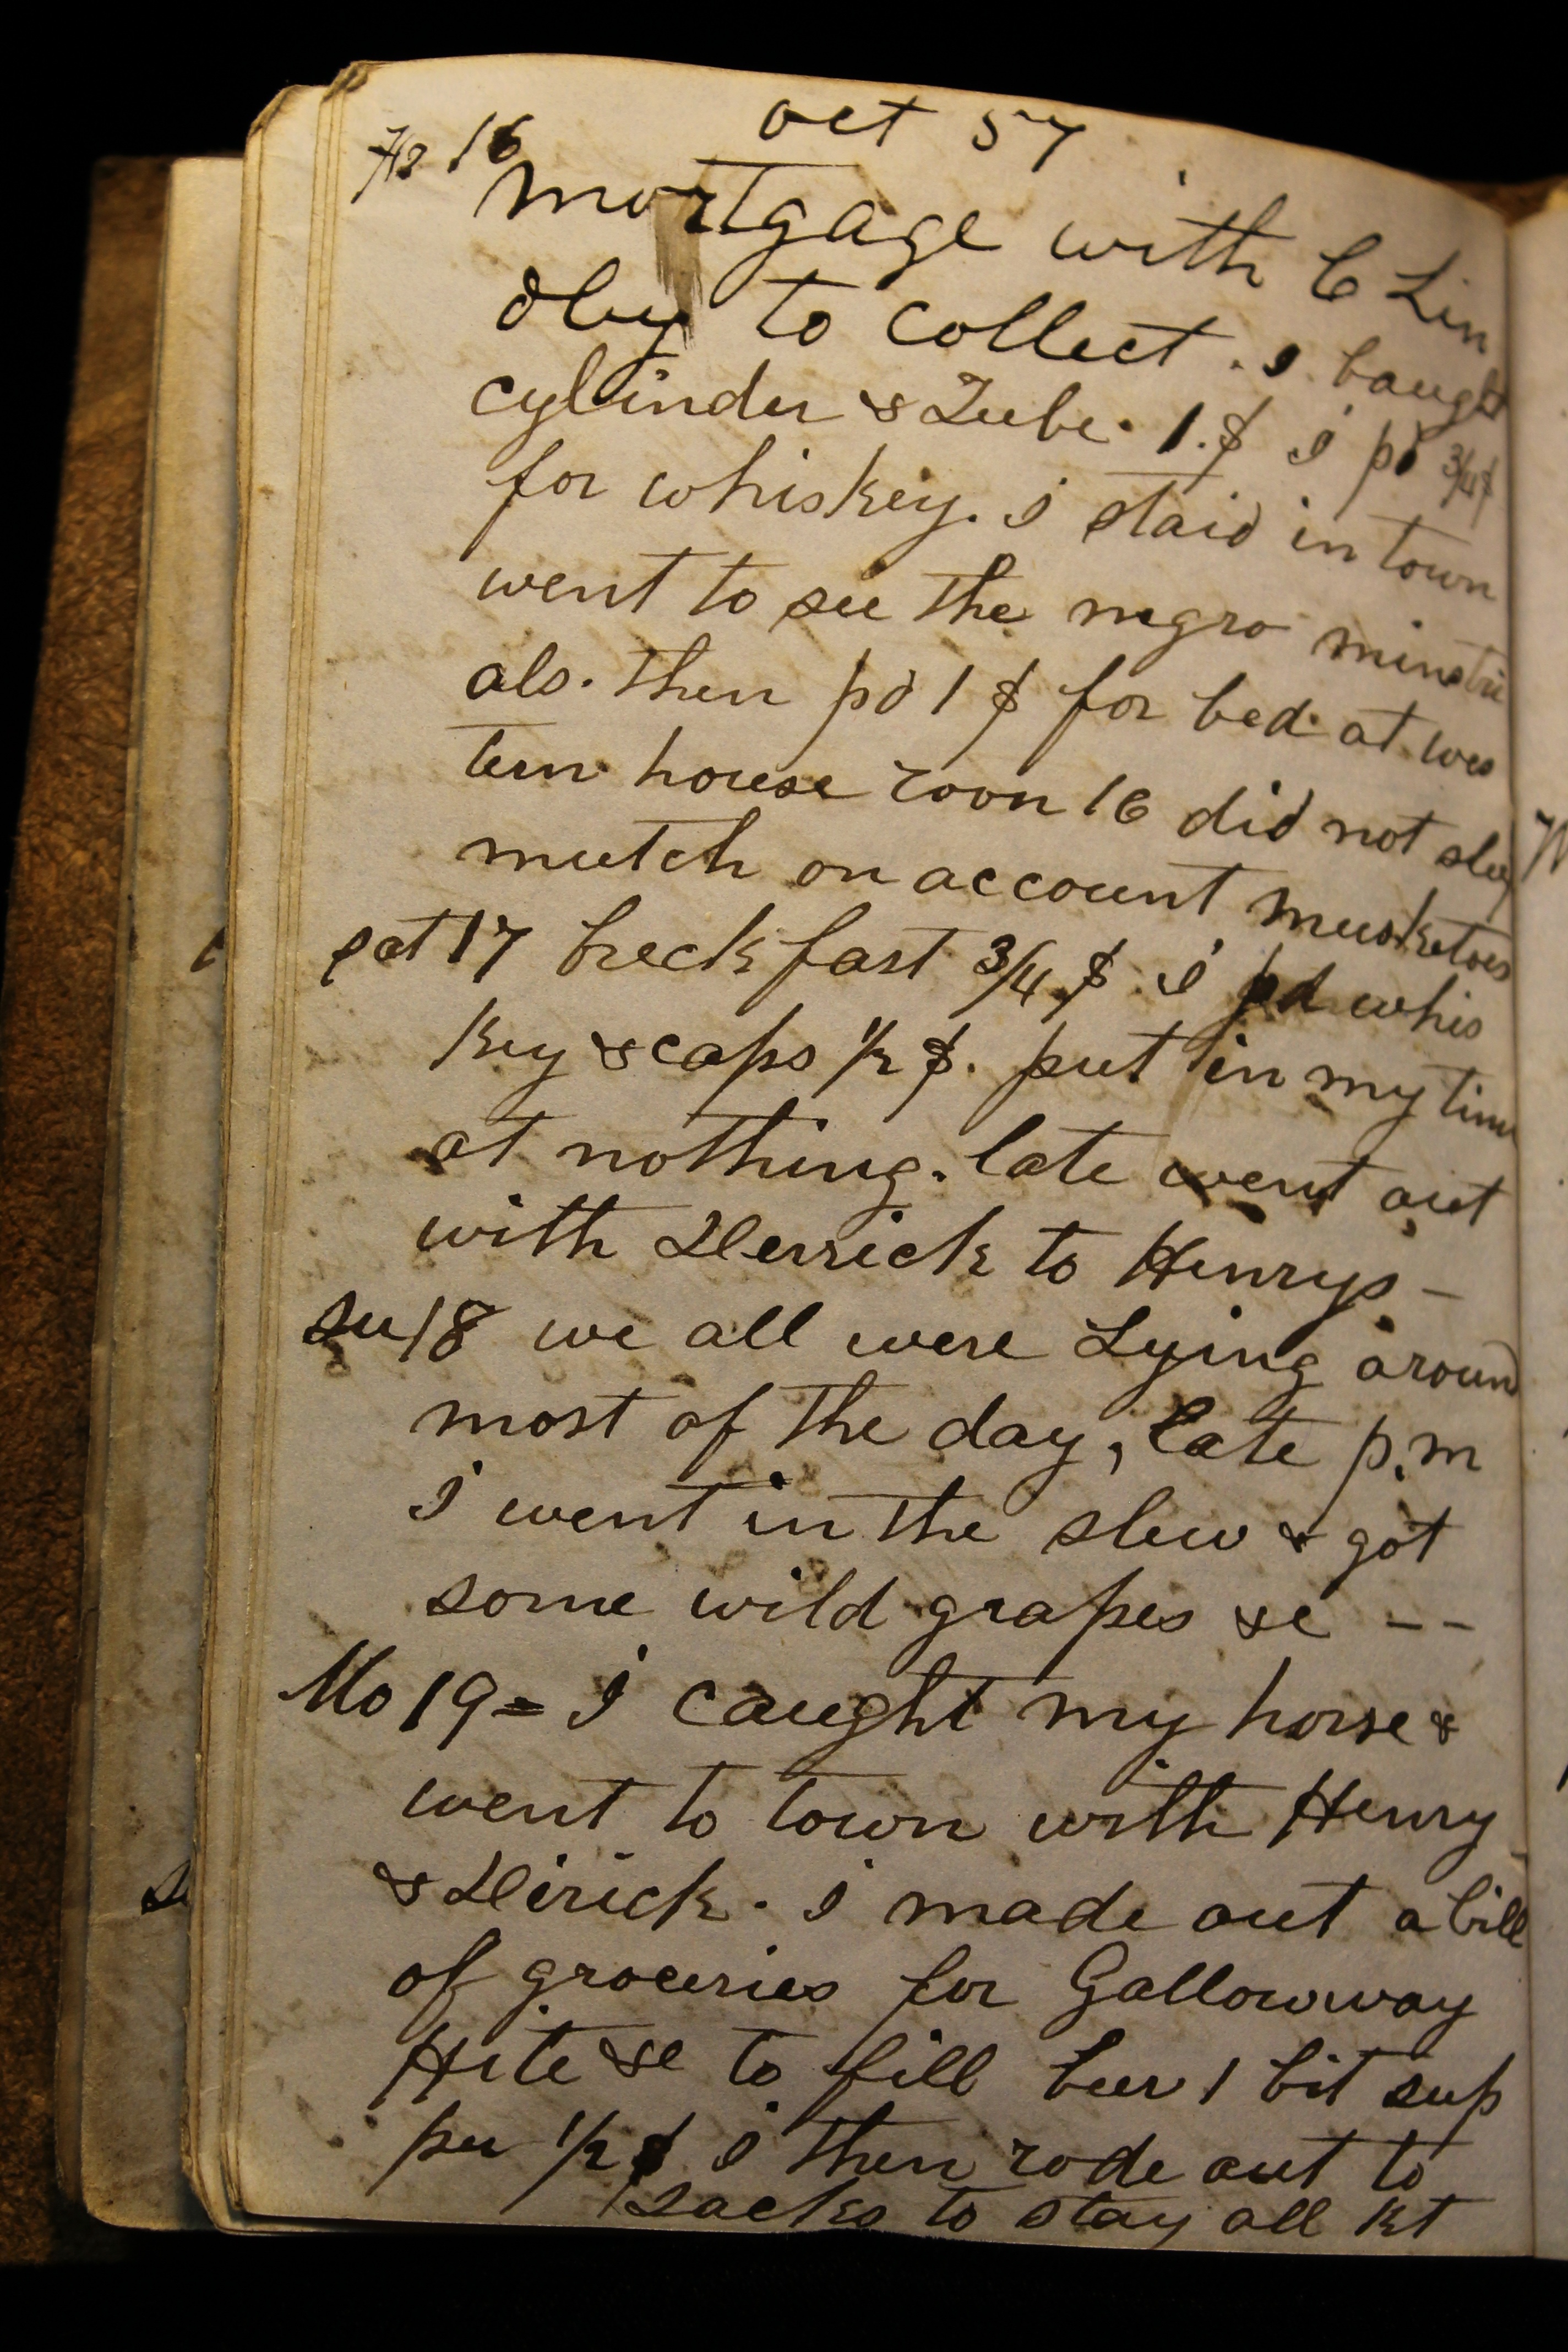 oct 57
Fr 16
mortgage with C Lin
dley to collect. I baught
cylinder & Tube. 1.$ I pd 3/4$
for whiskey. I staid in town
went to see the negro minstri
als. then pd 1 $ for bed at wes
tern house roon 16 did not sleep
mutch on account musketoes
sat 17 breckfast 3/4 $. I pd whis
key & caps 1/2 $. put in my time
at nothing. late went out
with Derrick to Henrys -
su 18 we all were Lying around
most of the day, late p.m
I went in the slew & got
some wild grapes &c - -
Mo 19 = I caught my horse &
went to town with Henry
& Derick. I made out a bill
of groceries for Gallowway
Hite &c to fill beer 1 bit sup
per 1/2 $ I then rode out to
Jacks to stay all kt